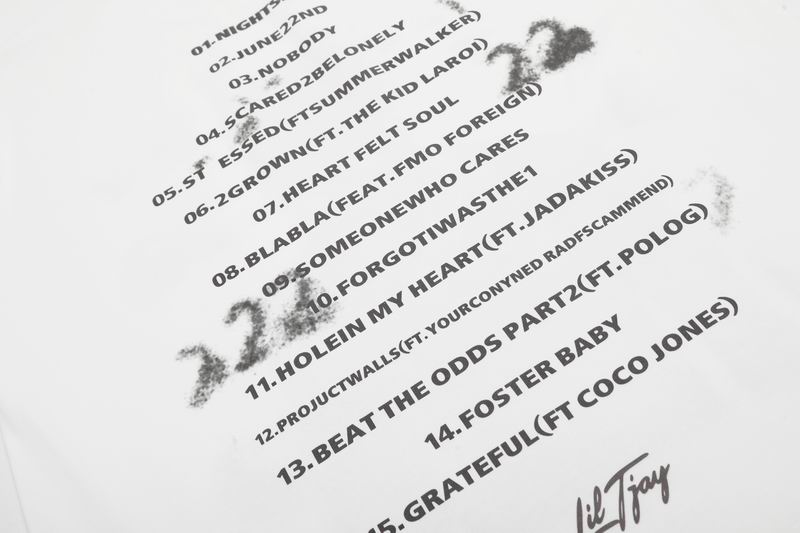 01.NIGHTS
02.JUNE22ND
03.NOBODY
04.SCARED2BELONELY
05.ST ESSED(FTSUMMERWALKER)
06.2GROWN(FT.THE KID LAROI)
07.HEART FELT SOUL
08.BLABLA(FEAT.FMO FOREIGN)
09.SOMEONEWHO CARES
10.FORGOTIWASTHE1
11.HOLEIN MY HEART(FT.JADAKISS)
12.PROJUCTWALLS(FT.YOURCONYNED RADFSCAMMEND)
13.BEAT THE ODDS PART2(FT.POLOG)
14.FOSTER BABY
15.GRATEFUL(FT COCO JONES)
Lil Tjay
22
222